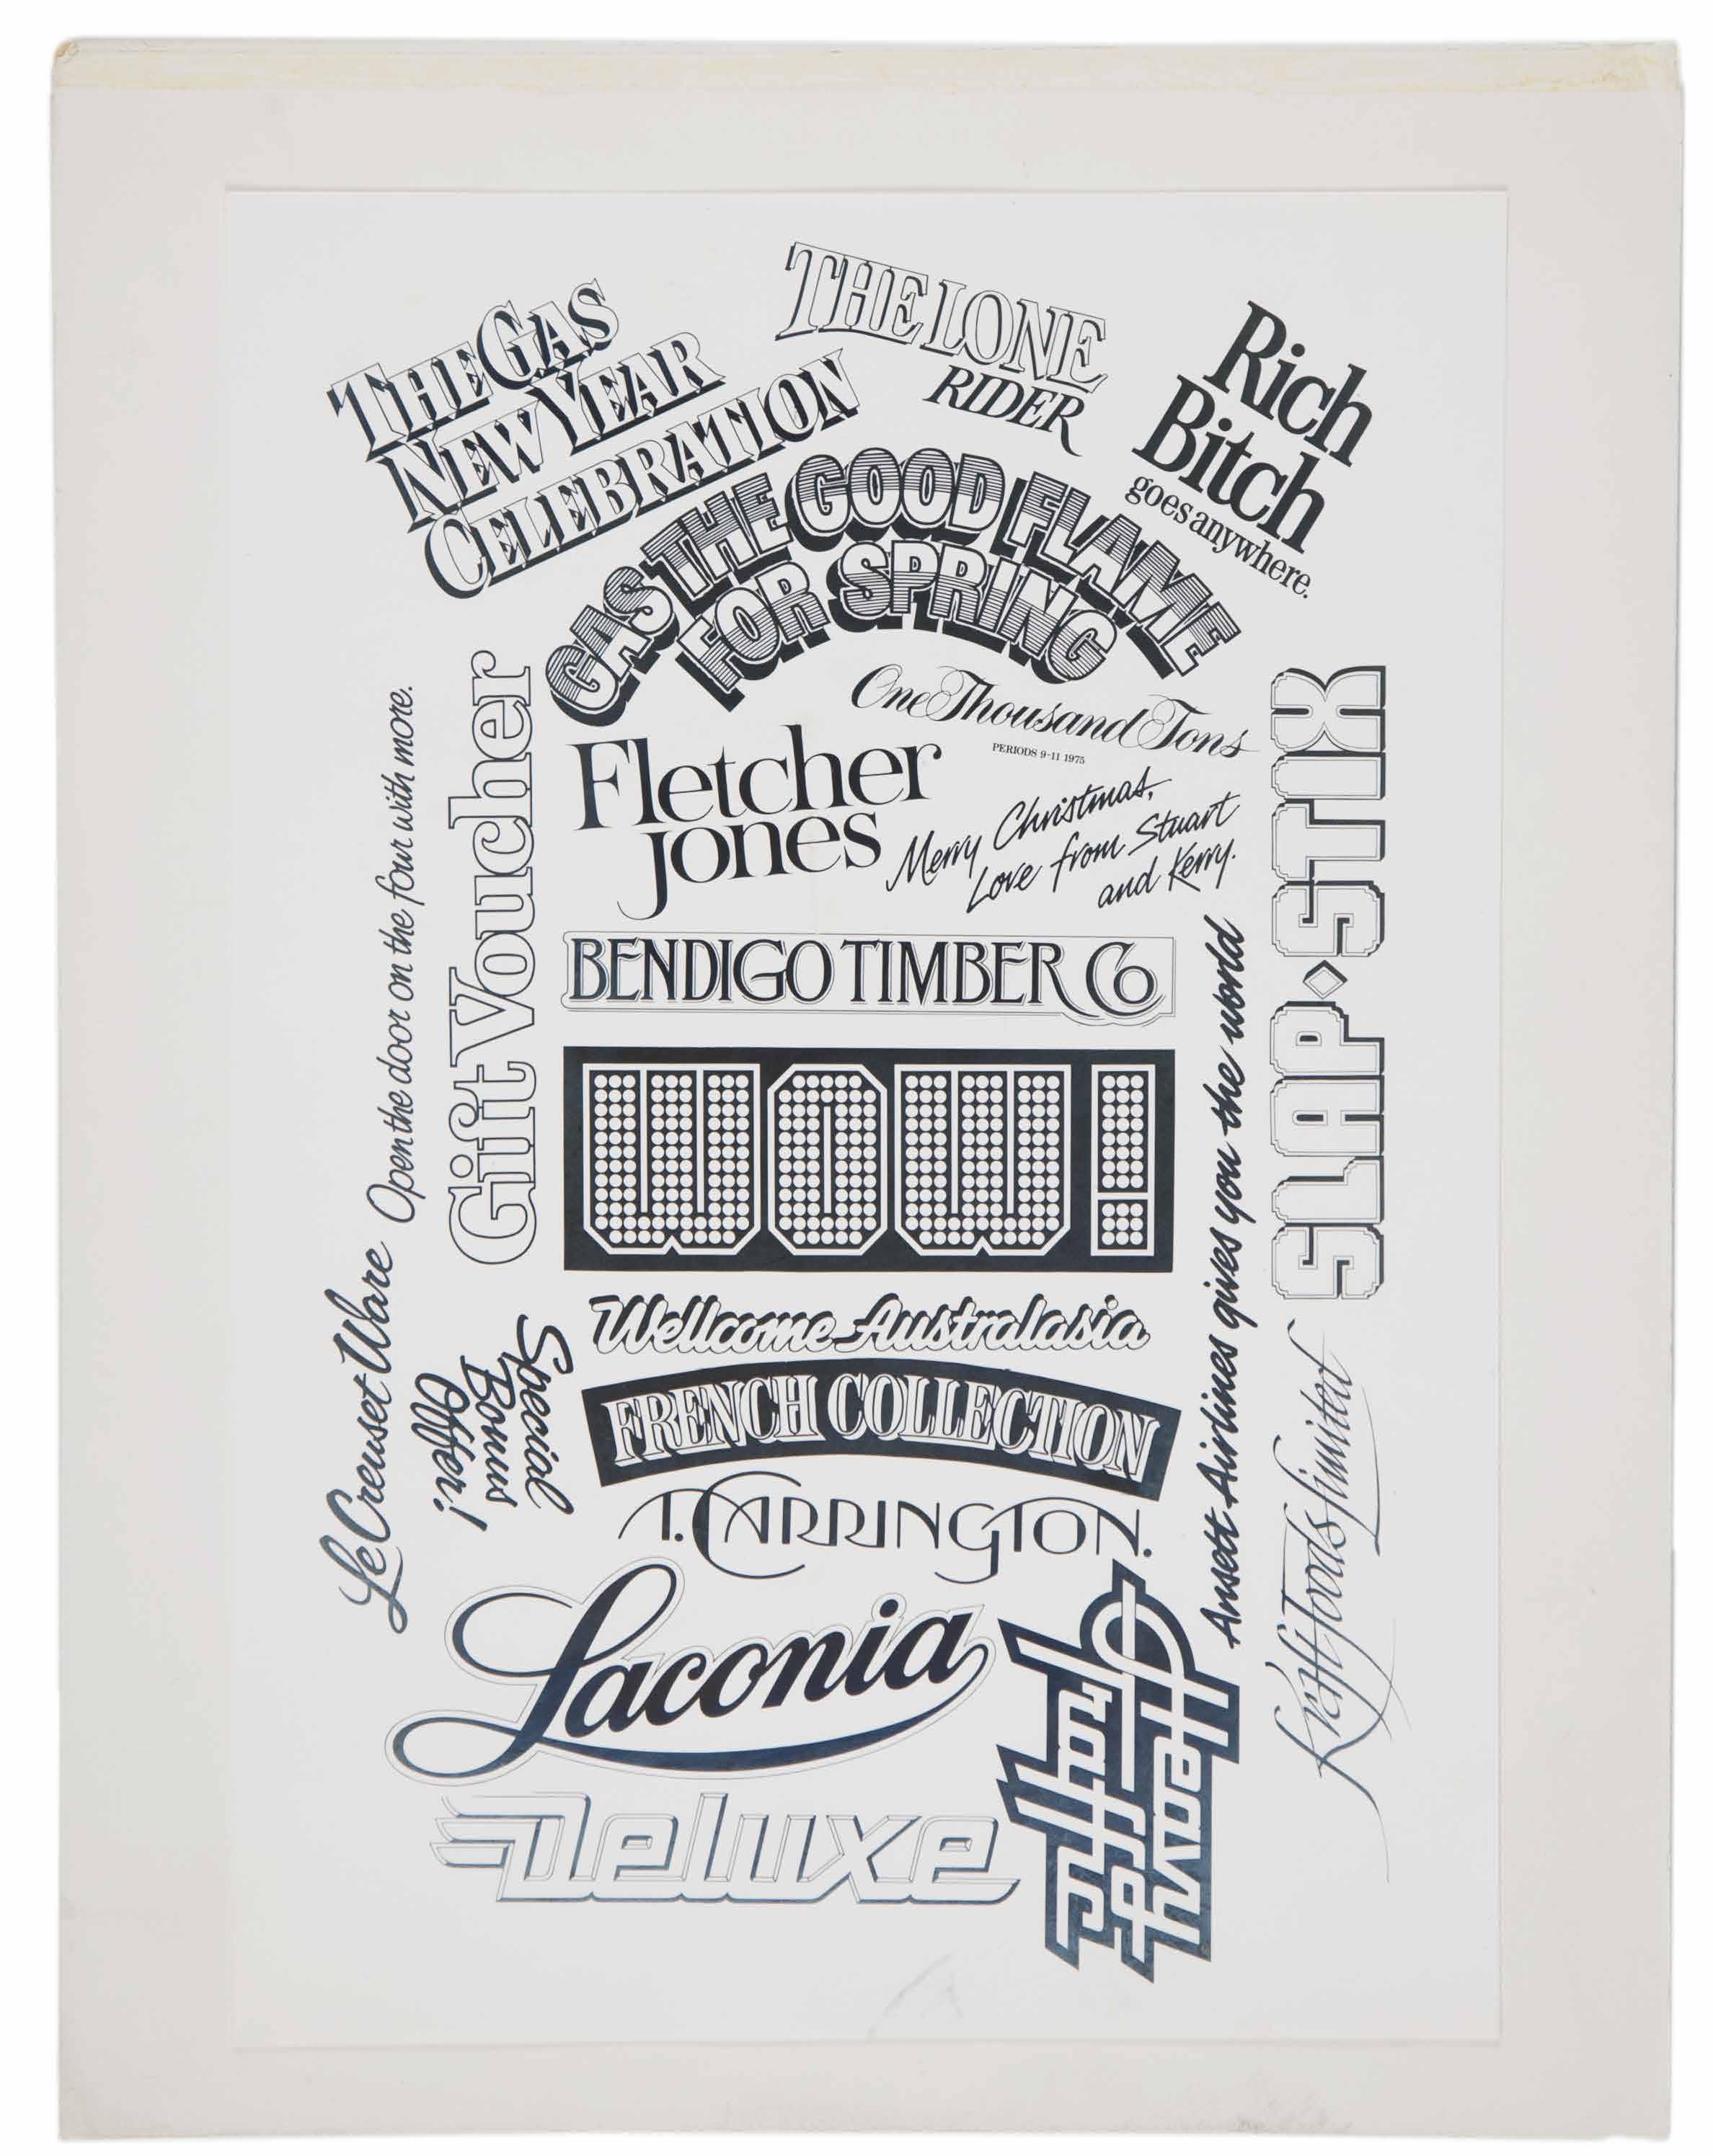 THE GAS
NEW YEAR
CELEBRATION
THE LONE
RIDER
Rich
Bitch
goes anywhere.
GAS THE GOOD FLAME
FOR SPRING
One Thousand Tons
PERIODS 9-11 1975
Fletcher
jones
Merry Christmas,
Love from Stuart
and Kerry.
Open the door on the four with more.
Gift Voucher
SLAP STIX
BENDIGO TIMBER CO
WOW!
Ansett Airlines gives you the world
Le Creuset Ware
Special
Bonus
Offer!
Wellcome Australasia
FRENCH COLLECTION
T. CARRINGTON.
Kraft Foods Limited
Laconia
Deluxe
Heavy